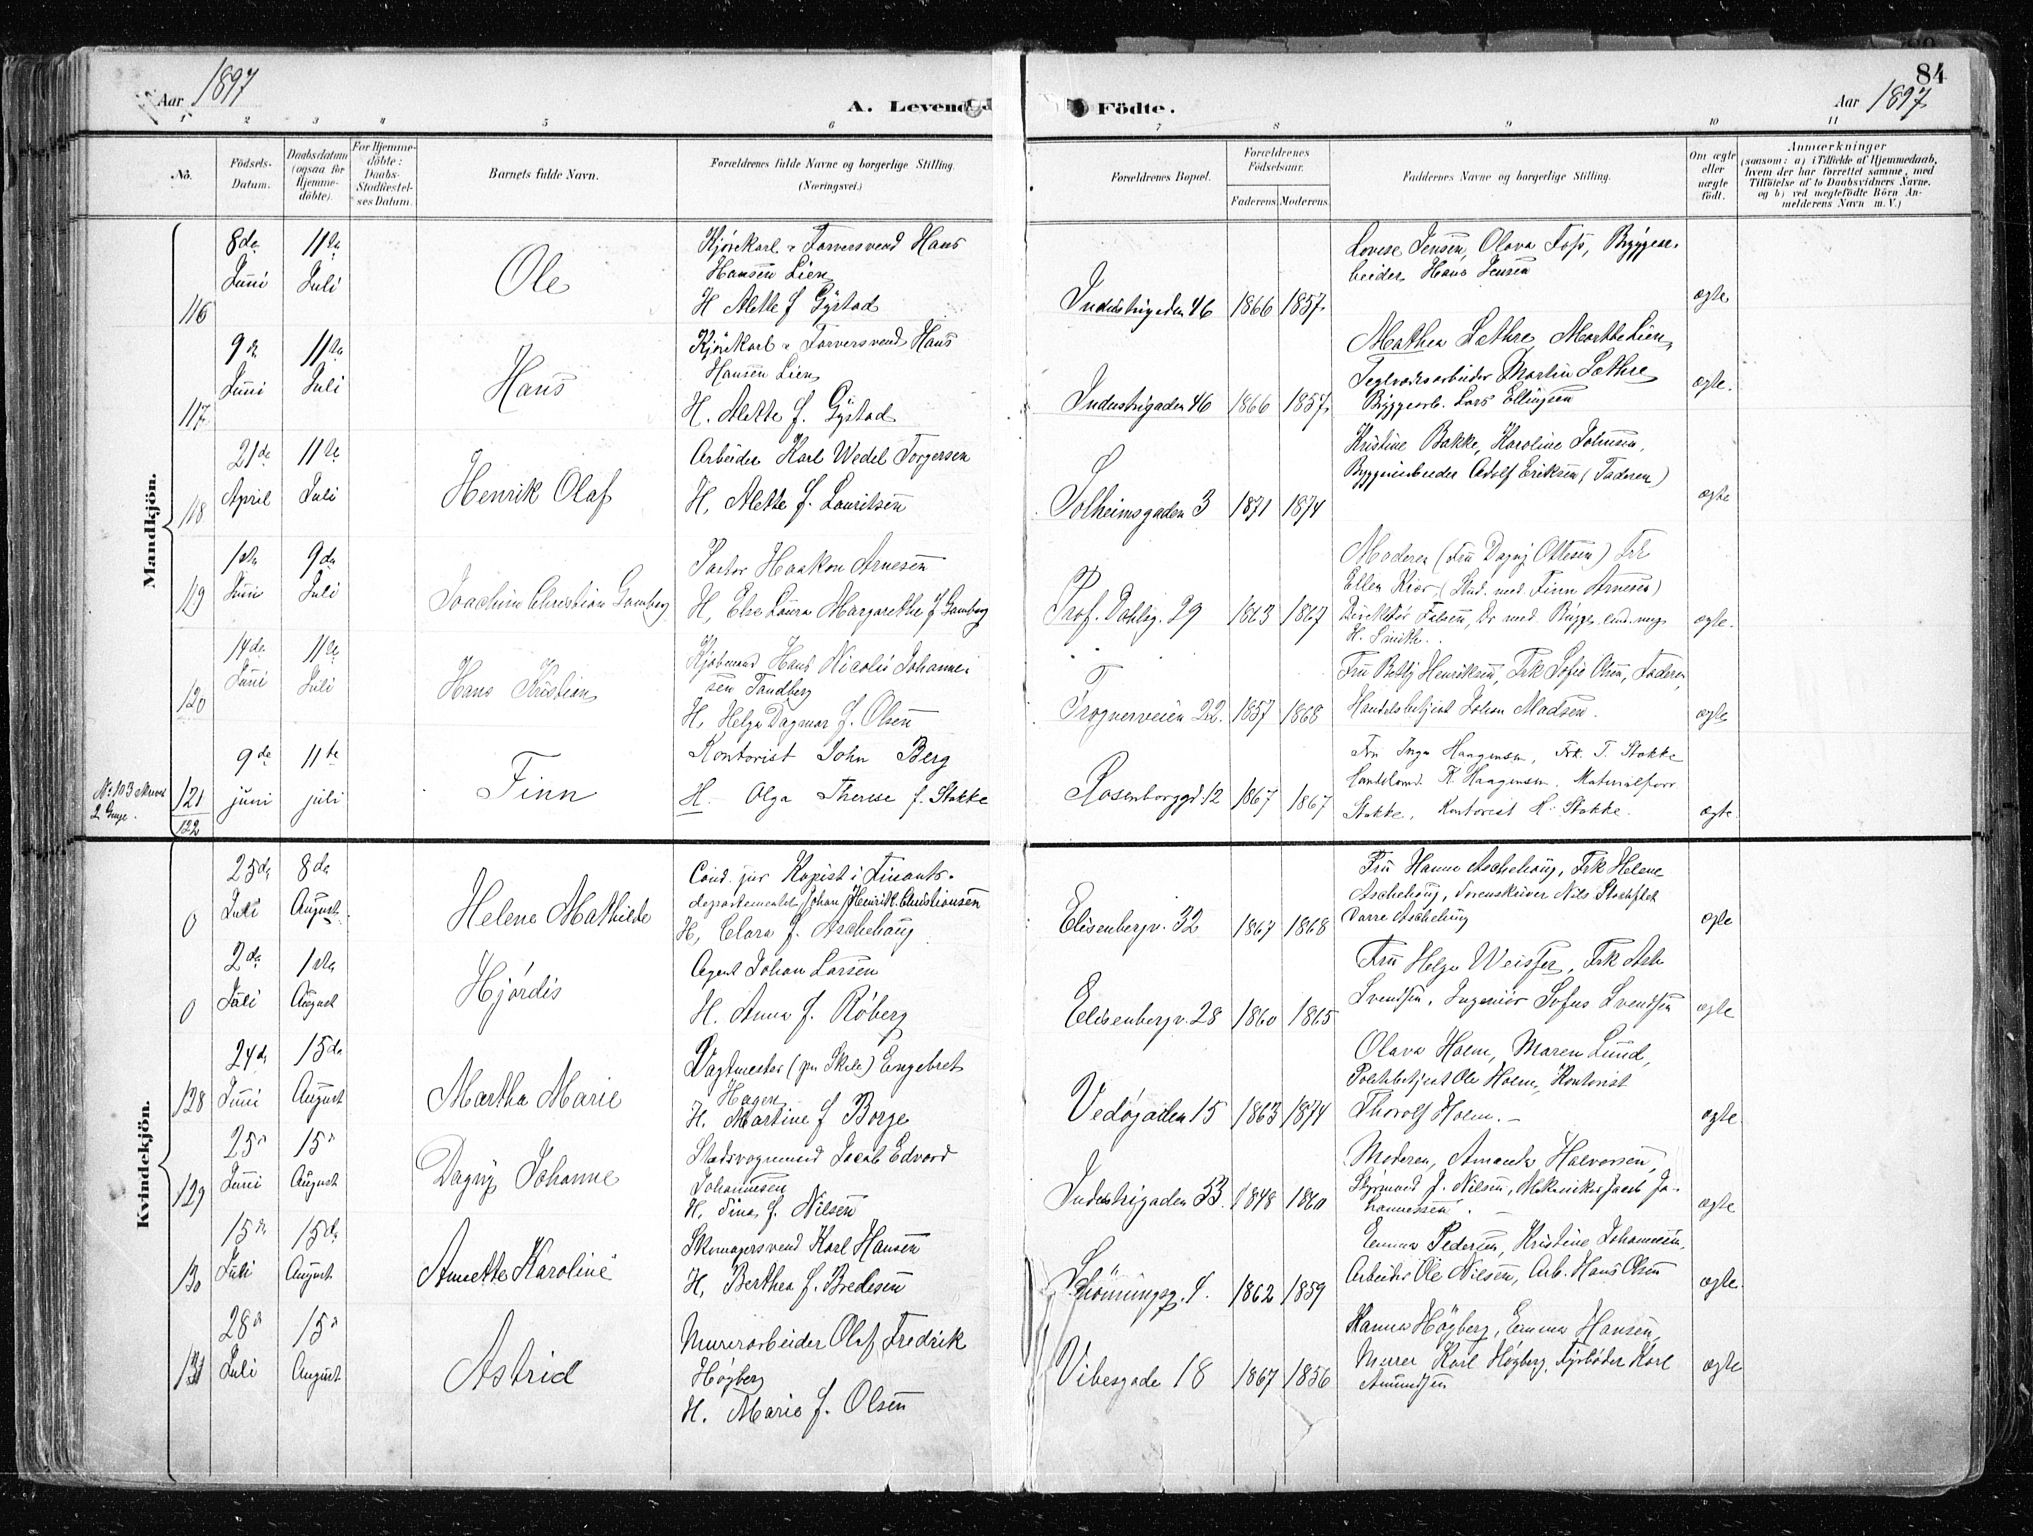 84
Aar 1897
A. Levende Födte.
Aar 1897
1 2 3 4 5 6 7 8 9 10 11
No.
Födsels-Datum.
Daabsdatum (ogsaa for Hjemme-döbte).
For Hjemme-döbte: Daabs-Stadfæstel-ses Datum.
Barnets fulde Navn.
Forældrenes fulde Navne og borgerlige Stilling. (Næringsvei.)
Forældrenes Bopæl.
Forældrenes Födselsaar.
Faderens. Moderens.
Faddernes Navne og borgerlige Stilling.
Om ægte eller uægte födt.
Anmærkninger
(saasom: a) i Tilfælde af Hjemmedaab,
hvem der har forrettet samme, med
Tilföielse af to Daabsvidners Navne,
og b) ved uægtefödte Börn An-
melderens Navn m. V.)
Mandkjön.
116 8de Juni 11te Juli Ole
Kjørekarl - Farversvend Hans
Hansen Lien
H. Alette f. Gystad
Industrigaden 46 1866 1857
Lovise Jensen, Olava Foss, Bryggear-
beider Hans Jensen
ægte
117 9de Juni 11te Juli Hans
Kjørekarl - Farversvend Hans
Hansen Lien
H. Alette f. Gystad
Industrigaden 46 1866 1857
Mathea Lethre Marthe Lien,
Teglværksarbeider Martin Lethre
Bryggearb. Lars Ellingsen
ægte.
118 21de April 11te Juli Henrik Olaf
Arbeider Karl Wedel Torgersen
H. Alette f. Lauritsen
Solheimsgaden 3 1871 1874
Kristine Bakke, Karoline Johnsen,
Bryggeriarbeider Adolf Eriksen (Faderen)
ægte
119 1ste Juni 9de Juli Joachim Christian Gamborg
Pastor Haakon Arnesen
H. Else Laura Margarethe f Gamborg
Prof. Dahlsg. 29 1863 1867
Moderen (Fru Dagny Ottesen) Frk
Ellen Kiær (Stud. med. Finn Arnesen)
Direktør Falsen, Dr med. Bugge, cand. mag.
H. Smith.
ægte.
120 14de Juni 11te Juli Hans Kristian
Kjøbmand Hans Nicolai Johanne-
sen Tandberg
H. Helga Dagmar f. Olsen
Frognerveien 22. 1857 1868
Fru Betsy Henriksen, Frk Sofie Olsen, Faderen,
Handelsbetjent Johan Madsen.
ægte
No 103 skrevet 2 Gange.
121
122
9de juni 11te juli Finn
Kontorist John Berg
H. Olga Therese f. Stokke
Rosenborggd. 12 1867 1867
Fru Inga Haagensen, Frk. T. Stokke
Handelsmd. K. Haagensen, Materialforv
Stokke, Kontorist H. Stokke.
ægte.
Kvindekjön.
0 25de Juli 8de August Helene Mathilde
Cand. jur Kopist i Finants-
departementet Johan Henrik Christiansen
H. Clara f. Aschehoug
Elisenbergv. 32 1867 1868
Fru Hanna Aschehoug, Frk Helene
Aschehoug, Sorenskriver Nils Stockfleth
Darre Aschehoug
ægte
0 2de Juli 1ste August Hjørdis
Agent Johan Larsen
H. Anna f. Røberg
Elisenbergv. 28 1860 1865
Fru Helga Weisser, Frk Asta
Svendsen, Ingeniør Sofus Svendsen
ægte
128 24de Juni 15de August Martha Marie
Vagtmester Engebret
Hagen
H. Martine f Borge
Vedøgaden 15 1863 1874
Olava Holm, Maren Lund,
Politibetjent Ole Holm, Kontorist
Thorolf Holm. -
ægte.
129 25de Juni 15de August Dagny Johanne
Stadsvognmand Jacob Edvard
Johannesen
H. Tina f. Nilsen
Industrigaden 53. 1848 1860
Moderen, Amanda Halvorsen,
Styrmand J. Nilsen, Mekaniker Jacob Jo-
hannessen. -
ægte
130 15de Juli 15de August Annette Karoline
Skomagersvend Karl Hansen
H. Berthea f. Bredesen
Schönningsg. 4. 1862 1859
Emma Pedersen, Kristine Johannesen,
Arbeider Ole Nilsen, Arb. Hans Olsen
ægte.
131 28de Juli 15de August Astrid
Murerarbeider Olaf Fredrik
Høgberg
H. Marie f. Olsen
Vibesgade 18 1867 1856
Hanna Høgberg, Emma Hansen,
Murer Karl Høgberg, Fyrbøder Karl
Amundsen
ægte